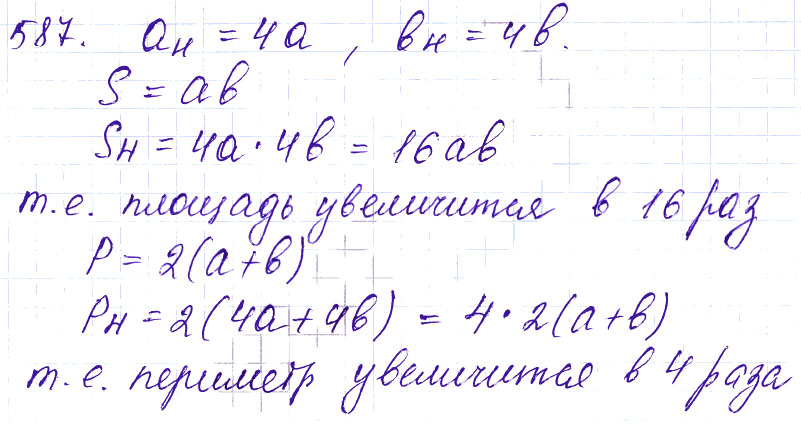 587. aн = 4a , bн = 4b.
S = ab
Sн = 4a · 4b = 16ab
т.е. площадь увеличится в 16 раз
P = 2(a+b)
Pн = 2(4a+4b) = 4 · 2(a+b)
т.е. периметр увеличится в 4 раза